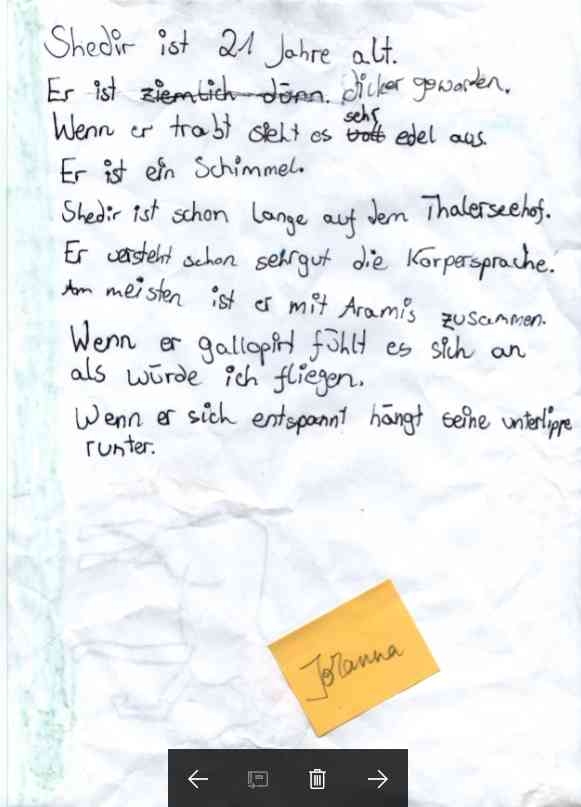 Shedir ist 21 Jahre alt.
Er ist ziemlich dünn. dicker geworden.
Wenn er trabt sieht es voll sehr edel aus.
Er ist ein Schimmel.
Shedir ist schon lange auf dem Thalerseehof.
Er versteht schon sehrgut die Körpersprache.
Am meisten ist er mit Aramis zusammen.
Wenn er gallopirt fühlt es sich an
als würde ich fliegen.
Wenn er sich entspannt hängt seine unterlippe
runter.
Johanna